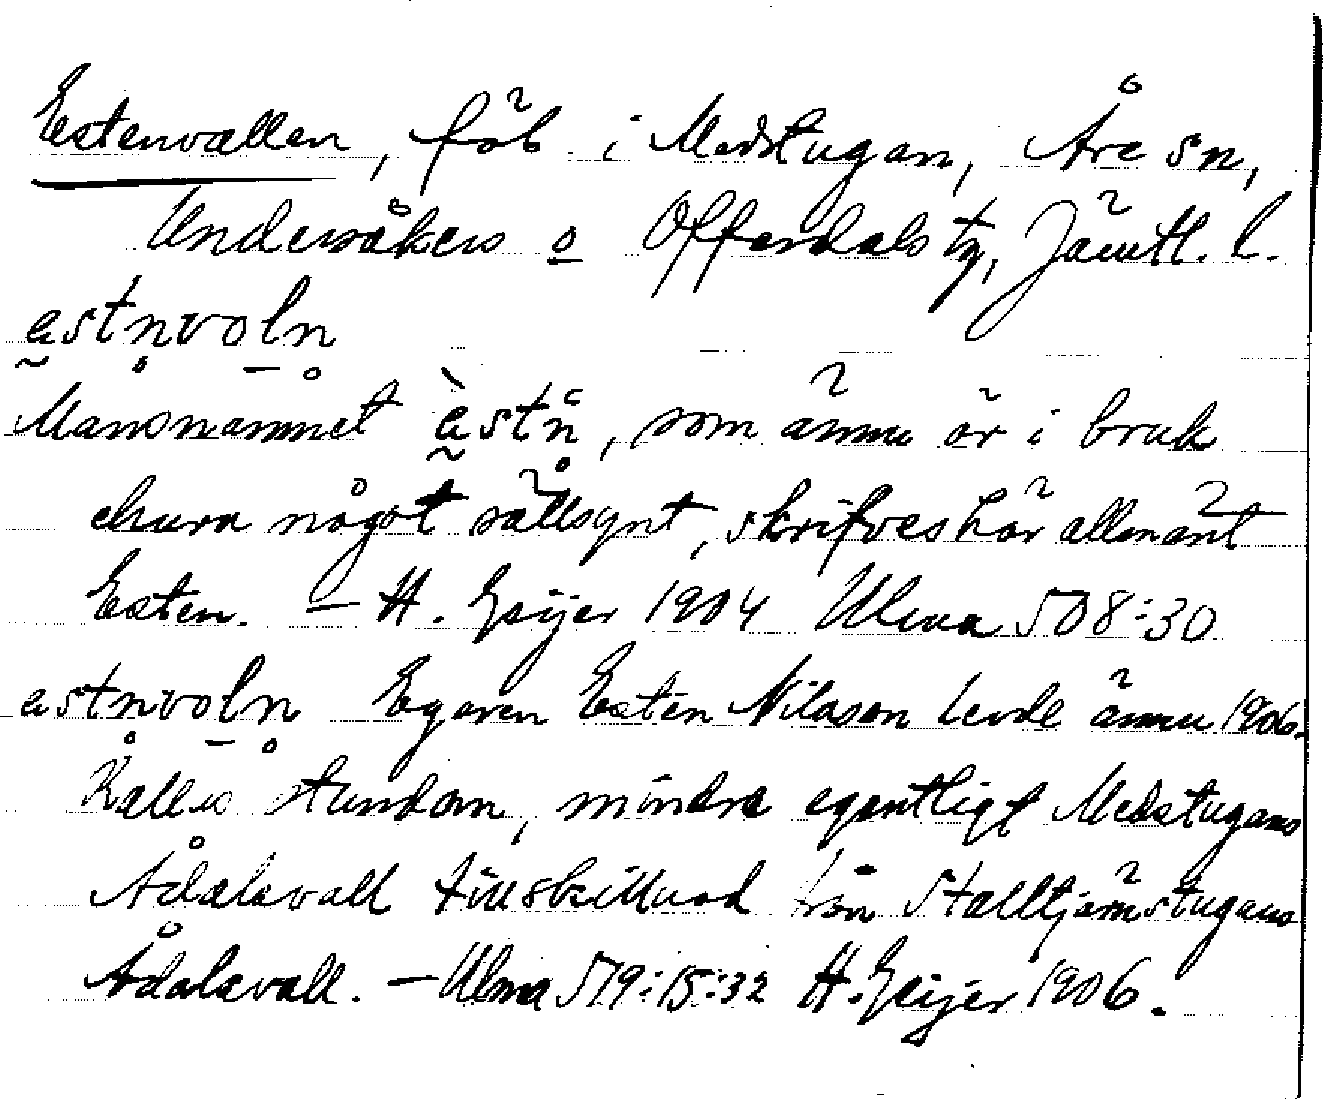 Estenvallen, fäb. i Medstugan, Åre sn,
Undersåkers o Offerdals tg, Jämtl. l.
a̰stn̥vo̱ln̥
Mansnamnet à̰stn̊, som ännu är i bruk
ehuru något sällsynt, skrifves här allmänt
Esten. – H. Geijer 1904 Ulma 508:30
astn̥vo̱ln̥ Egaren Esten Nilsson levde ännu 1906.
Kallas stundom, mindre egentligt Medstugans
Ådalsvall till skillnad från Stalltjärnstugans
Ådalsvall. – Ulma 579:15:32 H. Geijer 1906.